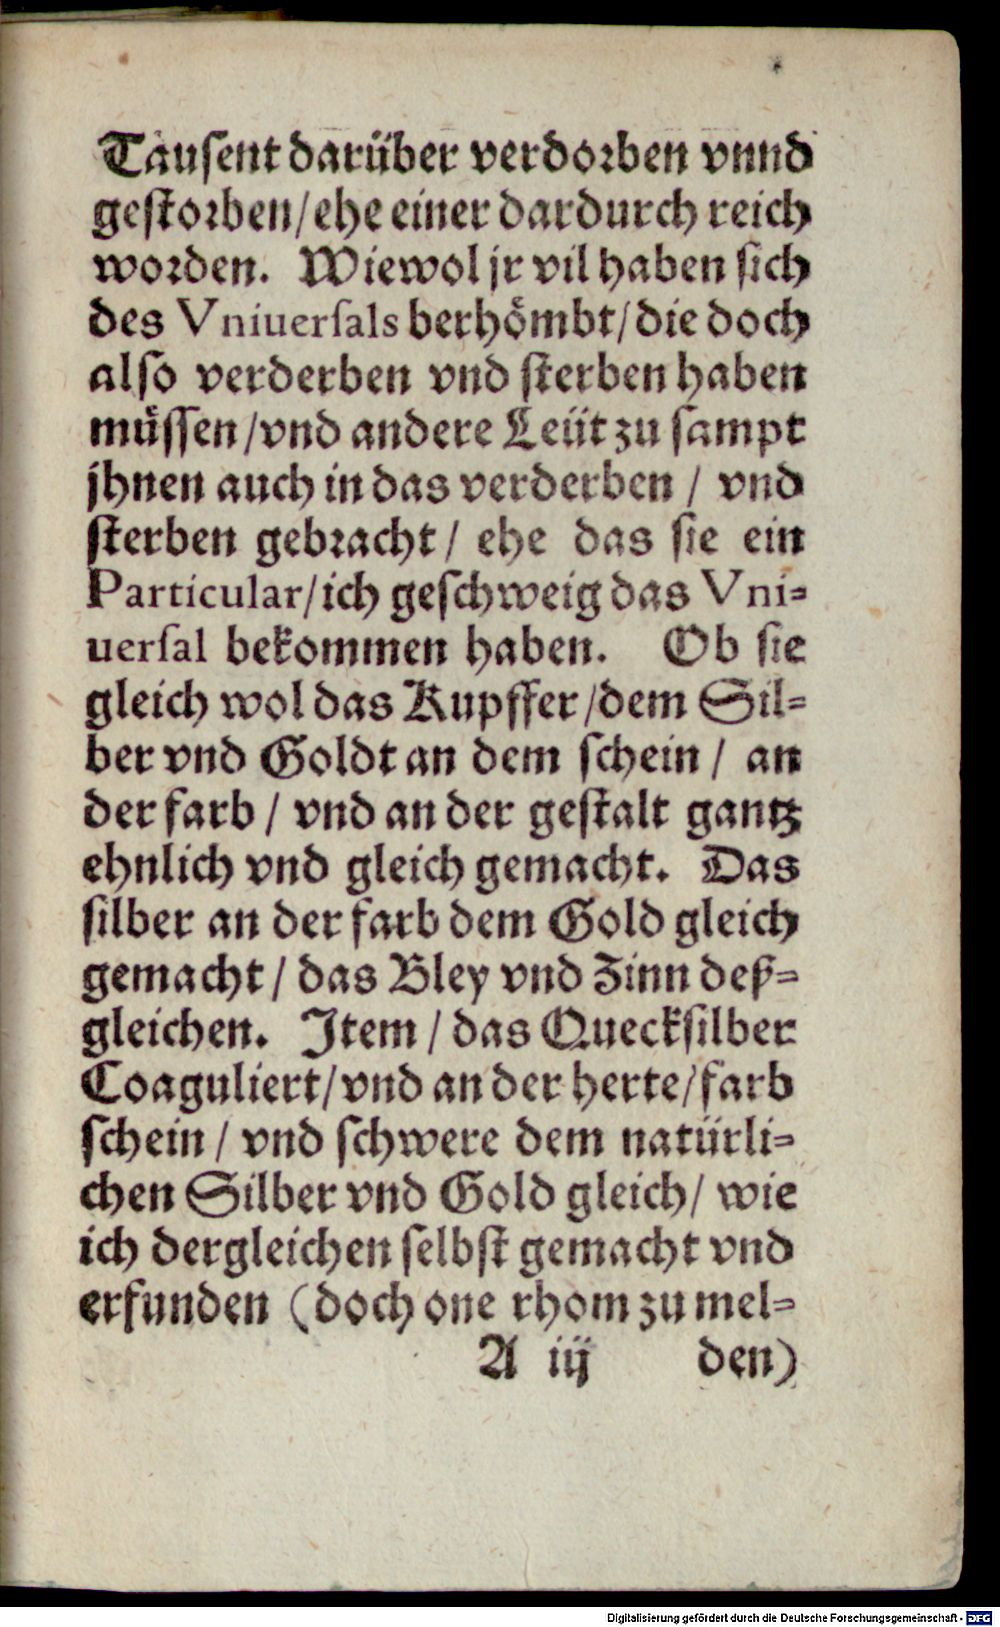 Tausent darüber verdorben vnnd
gestorben/ehe einer dardurch reich
worden. Wiewol jr vil haben sich
des Vniuersals berhömbt/die doch
also verderben vnd sterben haben
müssen/vnd andere Leüt zu sampt
jhnen auch in das verderben / vnd
sterben gebracht/ ehe das sie ein
Particular/ich geschweig das Vni-
uersal bekommen haben. Ob sie
gleich wol das Kupffer/dem Sil-
ber vnd Goldt an dem schein/ an
der farb/ vnd an der gestalt gantz
ehnlich vnd gleich gemacht. Das
silber an der farb dem Gold gleich
gemacht/ das Bley vnd Zinn deß-
gleichen. Item/ das Quecksilber
Coaguliert/vnd an der herte/farb
schein/ vnd schwere dem natürli-
chen Silber vnd Gold gleich/ wie
ich dergleichen selbst gemacht vnd
erfunden (doch one rhom zu mel-
A iij den)
Digitalisierung gefördert durch die Deutsche Forschungsgemeinschaft - DFG